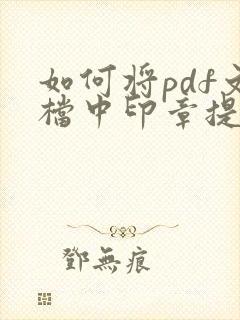 如何将pdf文
檔中印章提
鄧無痕